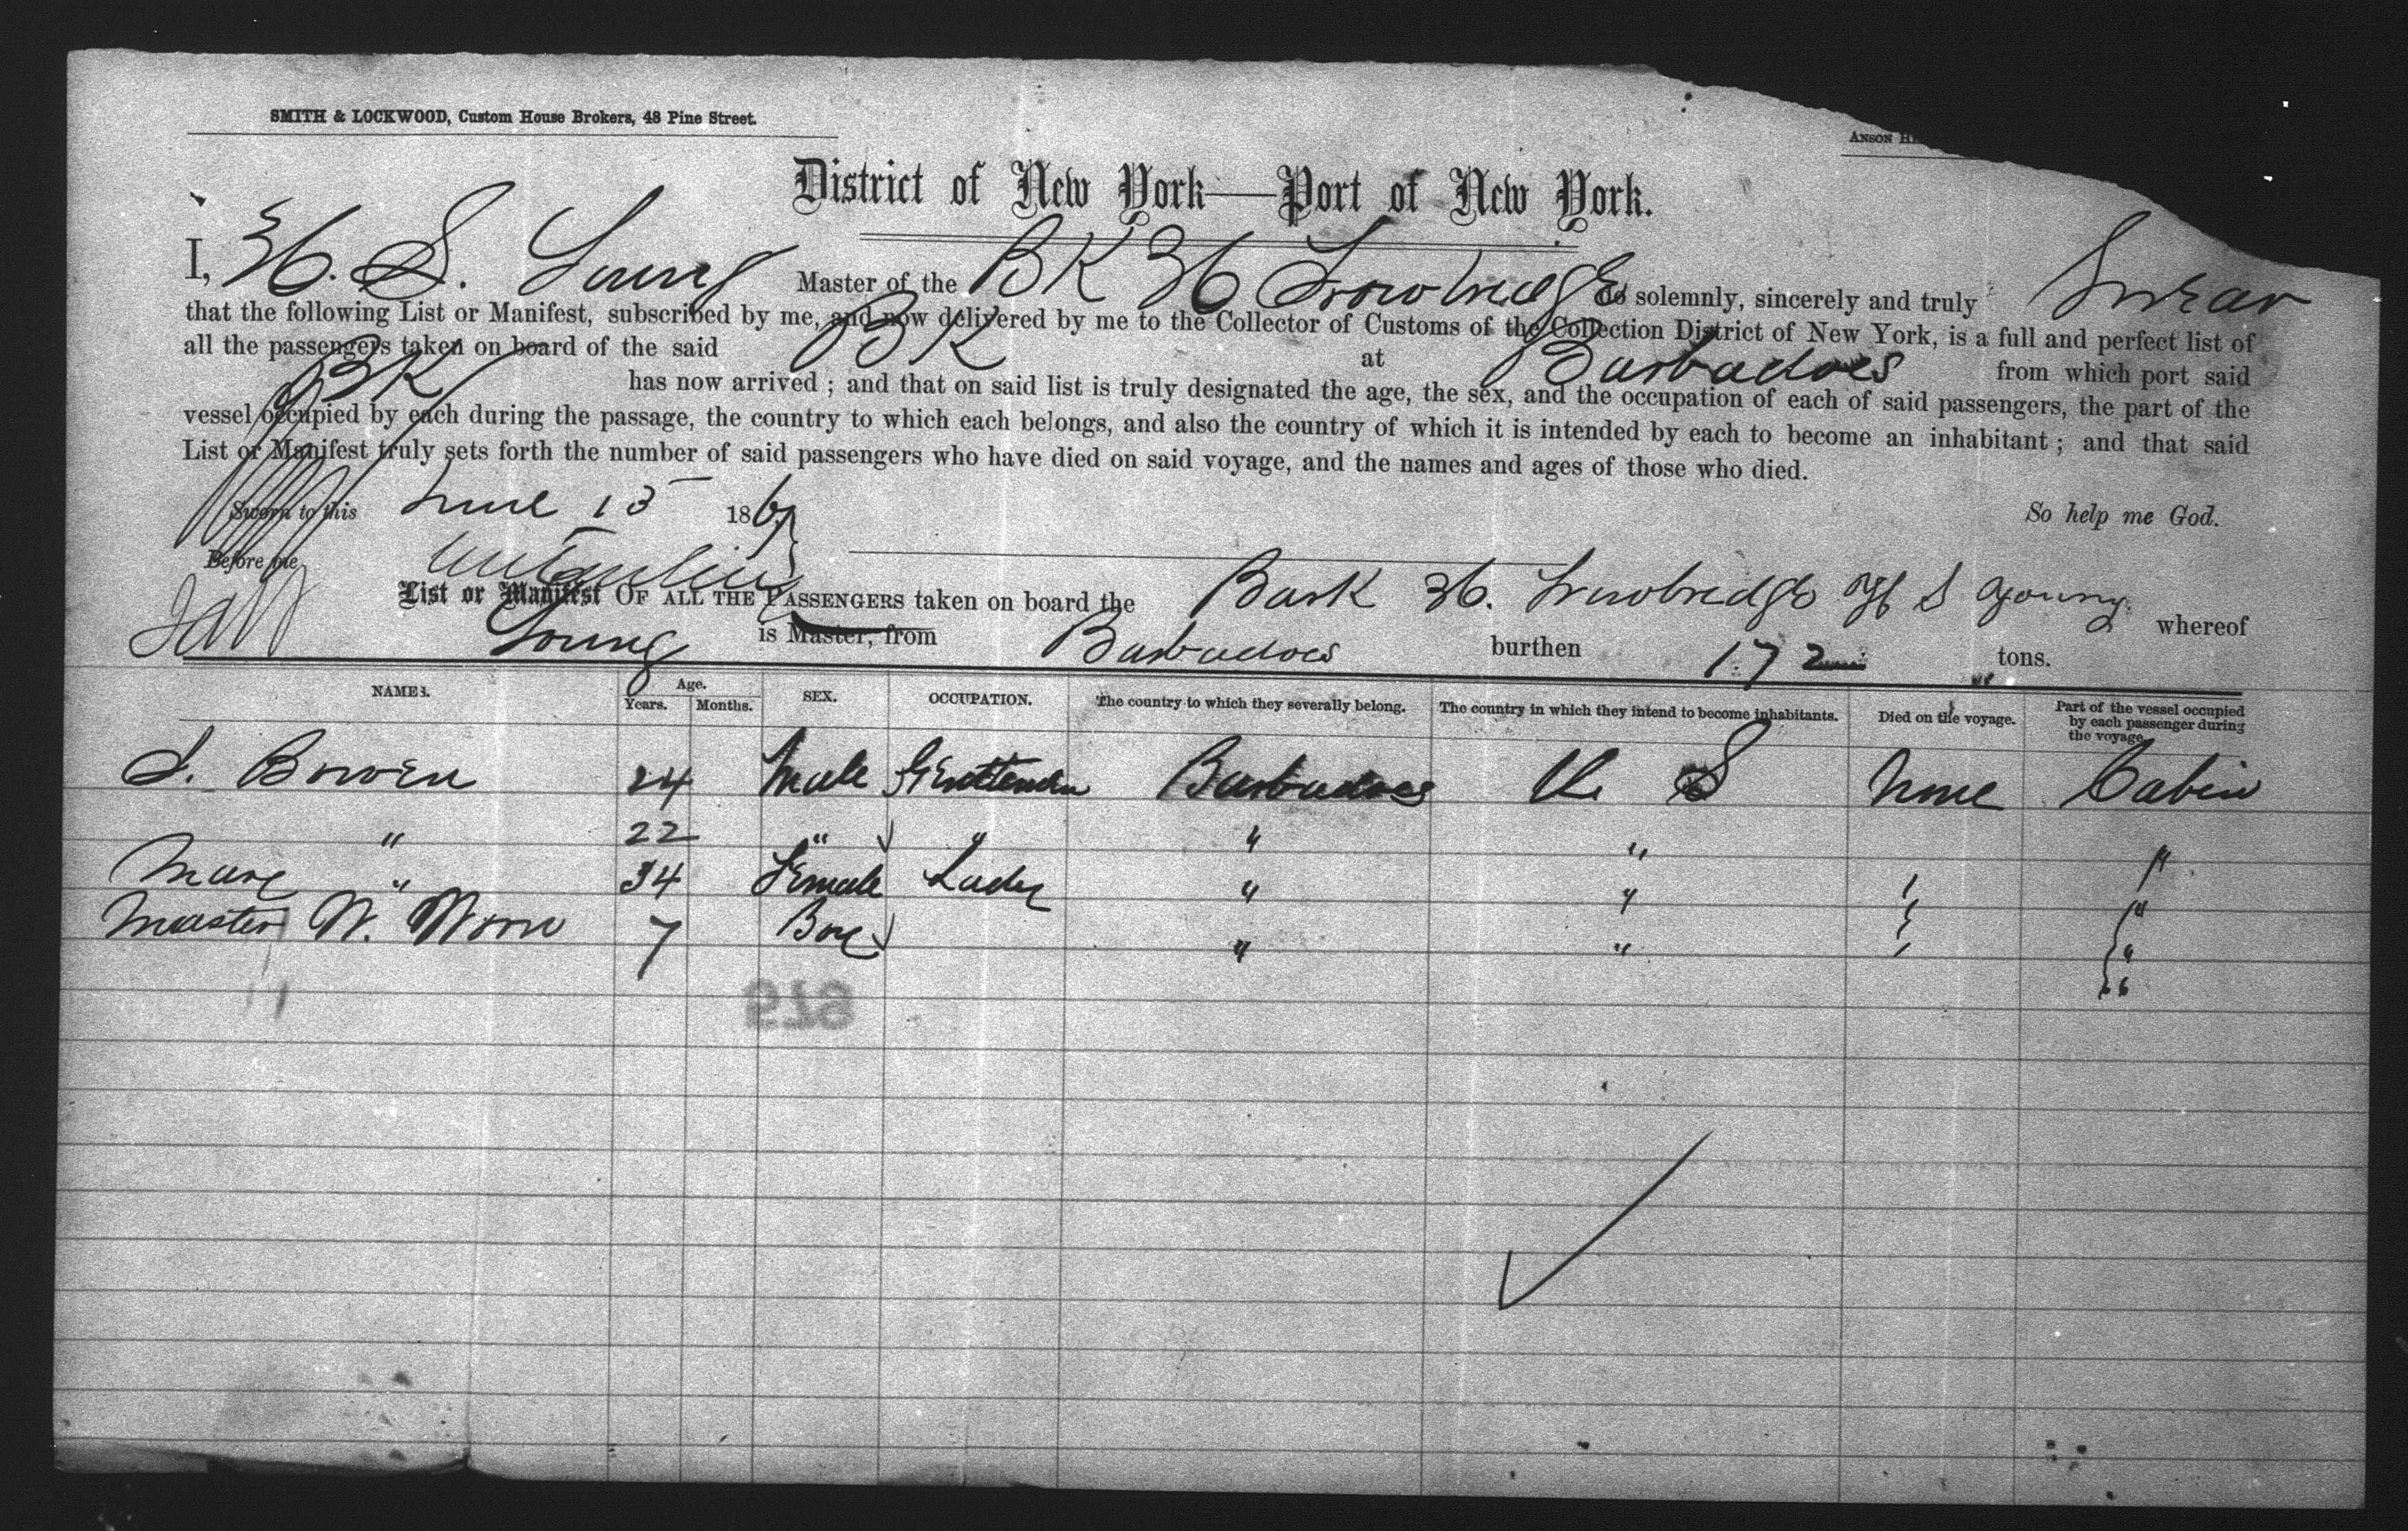 SMITH & LOCKWOOD, Custom House Brokers, 48 Pine Street.
ANSON H
District of New York—Port of New York.
I, H. S. Young Master of the BK H Trowbridge do solemnly, sincerely and truly Swear
that the following List or Manifest, subscribed by me, and now delivered by me to the Collector of Customs of the Collection District of New York, is a full and perfect list of
all the passengers taken on board of the said BK at Barbadoes from which port said
BK has now arrived ; and that on said list is truly designated the age, the sex, and the occupation of each of said passengers, the part of the
vessel occupied by each during the passage, the country to which each belongs, and also the country of which it is intended by each to become an inhabitant ; and that said
List or Manifest truly sets forth the number of said passengers who have died on said voyage, and the names and ages of those who died.
Sworn to this June 15 1867 So help me God.
Before me
List or Manifest OF ALL THE PASSENGERS taken on board the Bark H. Trowbridge H S Young whereof
Young is Master, from Barbadoes burthen 172 tons.
NAMES. Age. Years. Months. SEX. OCCUPATION. The country to which they severally belong. The country in which they intend to become inhabitants. Died on the voyage. Part of the vessel occupied by each passenger during the voyage.
Bowen 24 Male Barbadoes U S None Cabin
" 22 " " " " "
Mary " 34 Female Lady " " "
Master W. 7 Boy " " "
"
679